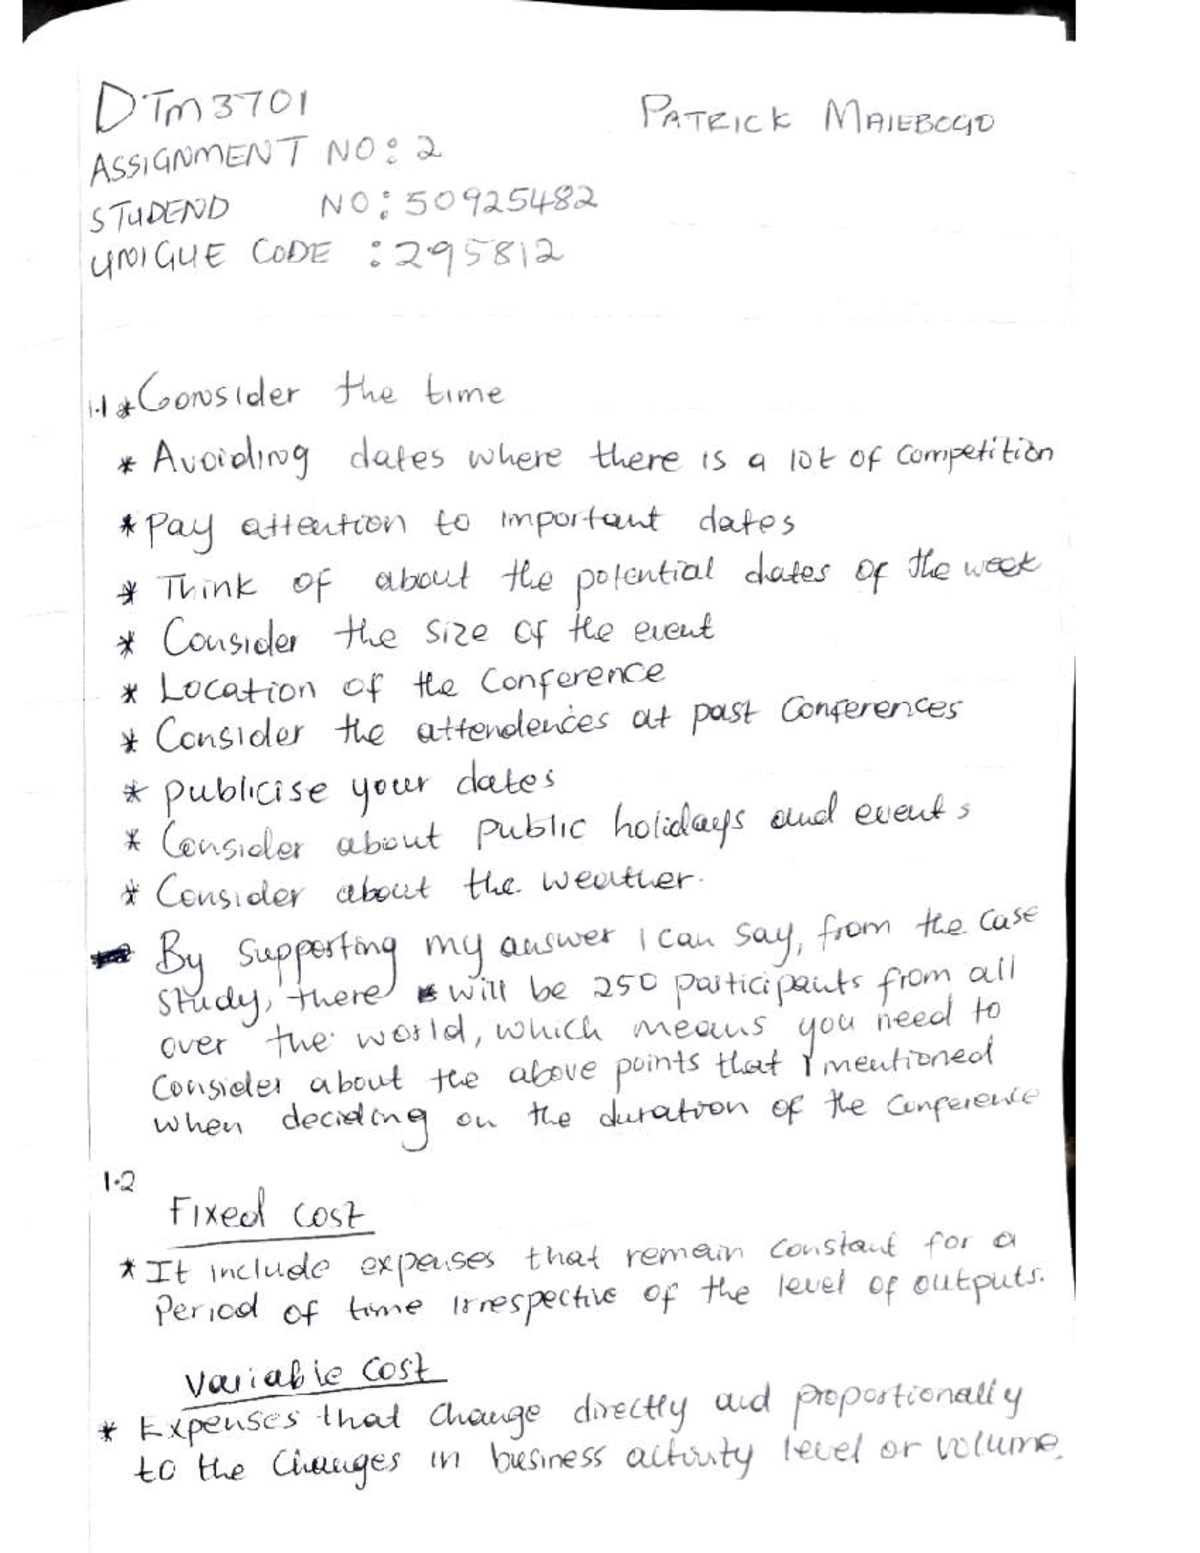 DTM3701
PATRICK MAIEBOGO
ASSIGNMENT NO: 2
STUDEND NO: 50925482
UNIGUE CODE : 295812
1.1 * Consider the time
* Avoiding dates where there is a lot of competition
* Pay attention to important dates
* Think of about the potential dates of the week
* Consider the size of the event
* Location of the Conference
* Consider the attendences at past Conferences
* publicise your dates
* Consider about public holidays and events
* Consider about the weather.
By supporting my answer I can say, from the case
study, there will be 250 participants from all
over the world, which means you need to
Consider about the above points that I mentioned
when deciding on the duration of the Conference
1.2
Fixed cost
* It include expenses that remain constant for a
Period of time Irrespective of the level of outputs.
Variable Cost
* Expenses that Change directly and proportionally
to the Changes in business activity level or volume.